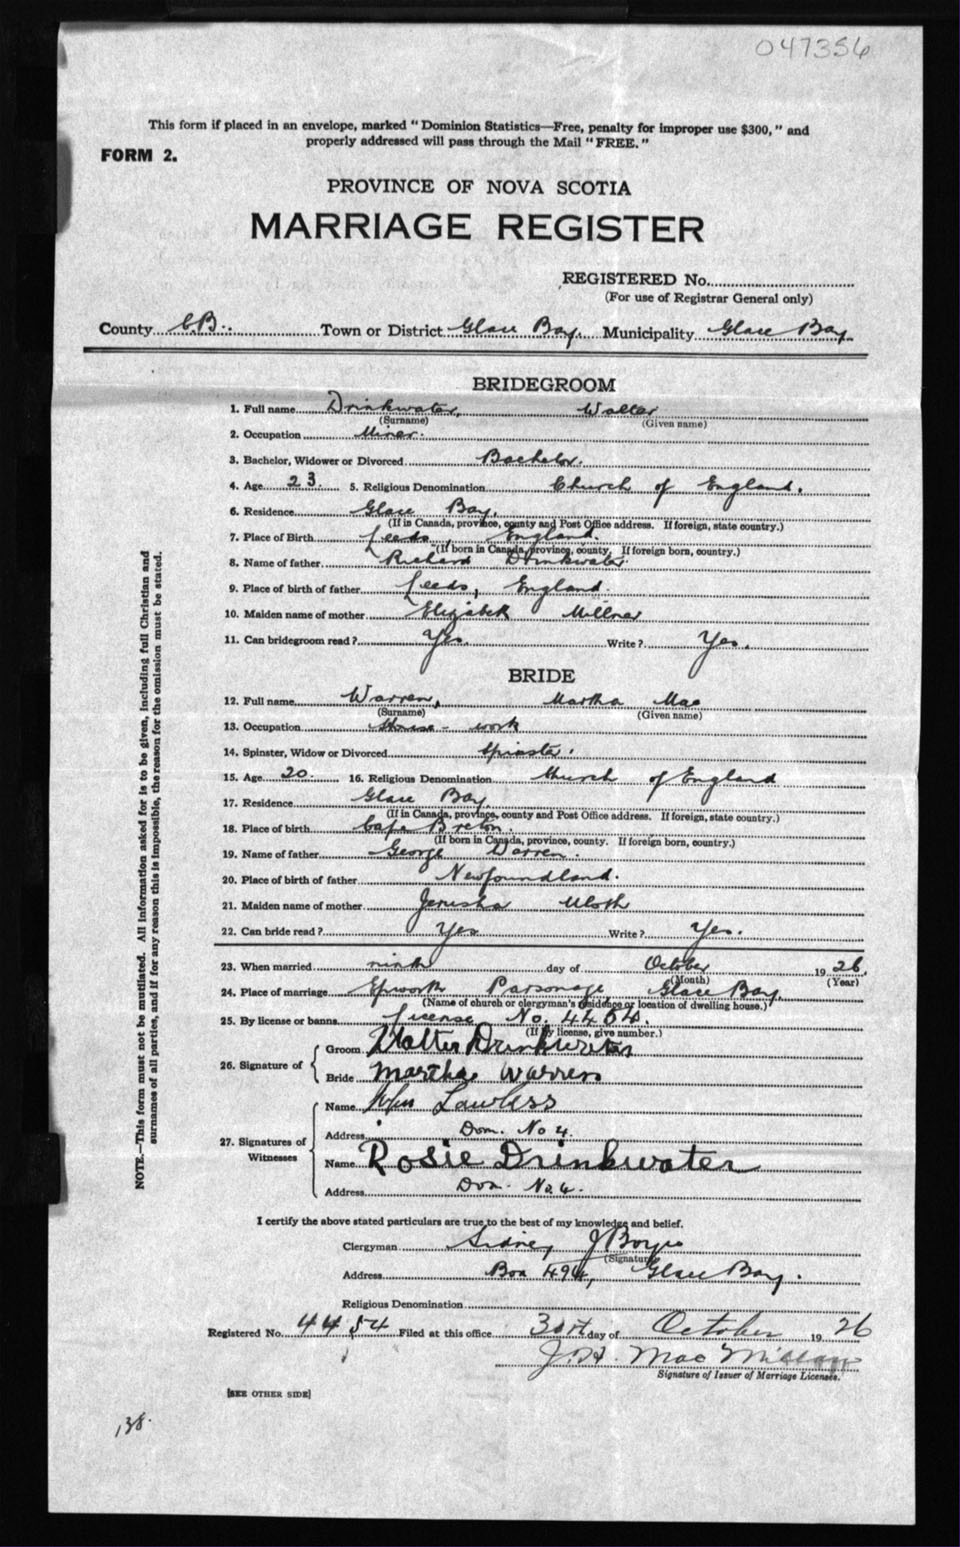 047356
This form if placed in an envelope, marked "Dominion Statistics—Free, penalty for improper use $300," and
properly addressed will pass through the Mail "FREE."
FORM 2.
PROVINCE OF NOVA SCOTIA
MARRIAGE REGISTER
REGISTERED No.
(For use of Registrar General only)
County C.B. Town or District Glace Bay. Municipality Glace Bay.
BRIDEGROOM
1. Full name Drinkwater, Walter
(Surname) (Given name)
2. Occupation Miner.
3. Bachelor, Widower or Divorced Bachelor.
4. Age 23. 5. Religious Denomination Church of England.
6. Residence Glace Bay.
(If in Canada, province, county and Post Office address. If foreign, state country.)
7. Place of Birth Leeds, England.
(If born in Canada, province, county. If foreign born, country.)
8. Name of father Richard Drinkwater.
9. Place of birth of father Leeds, England.
10. Maiden name of mother Elizabeth Millner
11. Can bridegroom read? Yes. Write? Yes.
BRIDE
12. Full name Warren, Martha Mae
(Surname) (Given name)
13. Occupation House-work
14. Spinster, Widow or Divorced Spinster.
15. Age 20. 16. Religious Denomination Church of England
17. Residence Glace Bay
(If in Canada, province, county and Post Office address. If foreign, state country.)
18. Place of birth Cape Breton.
(If born in Canada, province, county. If foreign born, country.)
19. Name of father George Warren.
20. Place of birth of father Newfoundland.
21. Maiden name of mother Jerusha Uloth
22. Can bride read? Yes Write? Yes.
23. When married ninth day of October 1926.
(Month) (Year)
24. Place of marriage Epworth Parsonage Glace Bay.
(Name of church or clergyman's residence or location of dwelling house.)
25. By license or banns License No. 4454.
(If by license, give number.)
26. Signature of
Groom Walter Drinkwater
Bride Martha Warren
27. Signatures of Witnesses
Name Wm Lawless
Address Dom. No 4.
Name Rosie Drinkwater
Address Dom. No. 4.
I certify the above stated particulars are true to the best of my knowledge and belief.
Clergyman Sidney J Boyce
(Signature)
Address Box 494, Glace Bay.
Religious Denomination
Registered No. 4454 Filed at this office 30th day of October 1926
J. H. MacMillan
Signature of Issuer of Marriage Licenses.
[SEE OTHER SIDE]
138.
NOTE.—This form must not be mutilated. All information asked for is to be given, including full Christian and
surnames of all parties, and if for any reason this is impossible, the reason for the omission must be stated.